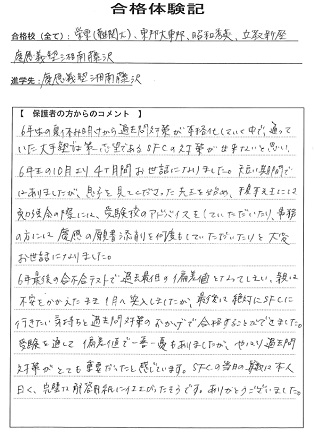 合格体験記
合格校（全て）: 栄東（難関大）、東邦大東邦、昭和秀英、立教新座
慶應義塾湘南藤沢
進学先: 慶應義塾湘南藤沢
【 保護者の方からのコメント 】
6年生の夏休み明けから過去問対策が本格化していく中で、通って
いた大手塾は第一志望であるSFCの対策が出来ないと思い、
6年生の10月より4ヶ月間お世話になりました。短い期間で
はありましたが、息子を見てくださった先生を始め、
の際には、受験校のアドバイスをしていただいたり、事務
の方には慶應の願書添削を何度もしていただいたりと大変
お世話になりました。
6年最後の合不合テストで過去最低の偏差値をとってしまい、親は
不安をかかえたまま1月へ突入しましたが、最後は絶対にSFCに
行きたい気持ちと過去問対策のおかげで合格することができました。
受験を通して偏差値で一喜一憂もありましたが、やはり過去問
対策がとても重要だったと感じています。SFCの当日の算数は本人
曰く、完璧な解答用紙に仕上がったそうです。ありがとうございました。